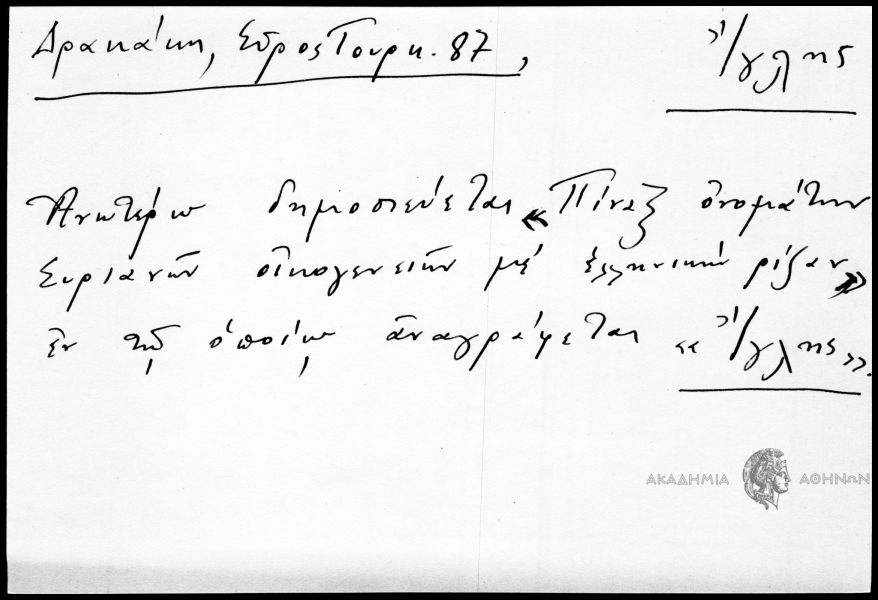 Δρακάκη, Σῦρος Τουρκ. 87, Ἴγλης
Ἀνωτέρω δημοσιεύεται «Πίναξ ὀνομάτων
Συριανῶν οἰκογενειῶν μέ ἑλληνικήν ρίζαν»
ἐν τῷ ὁποίῳ ἀναγράφεται «Ἴγλης».
ΑΚΑΔΗΜΙΑ ΑΘΗΝΩΝ